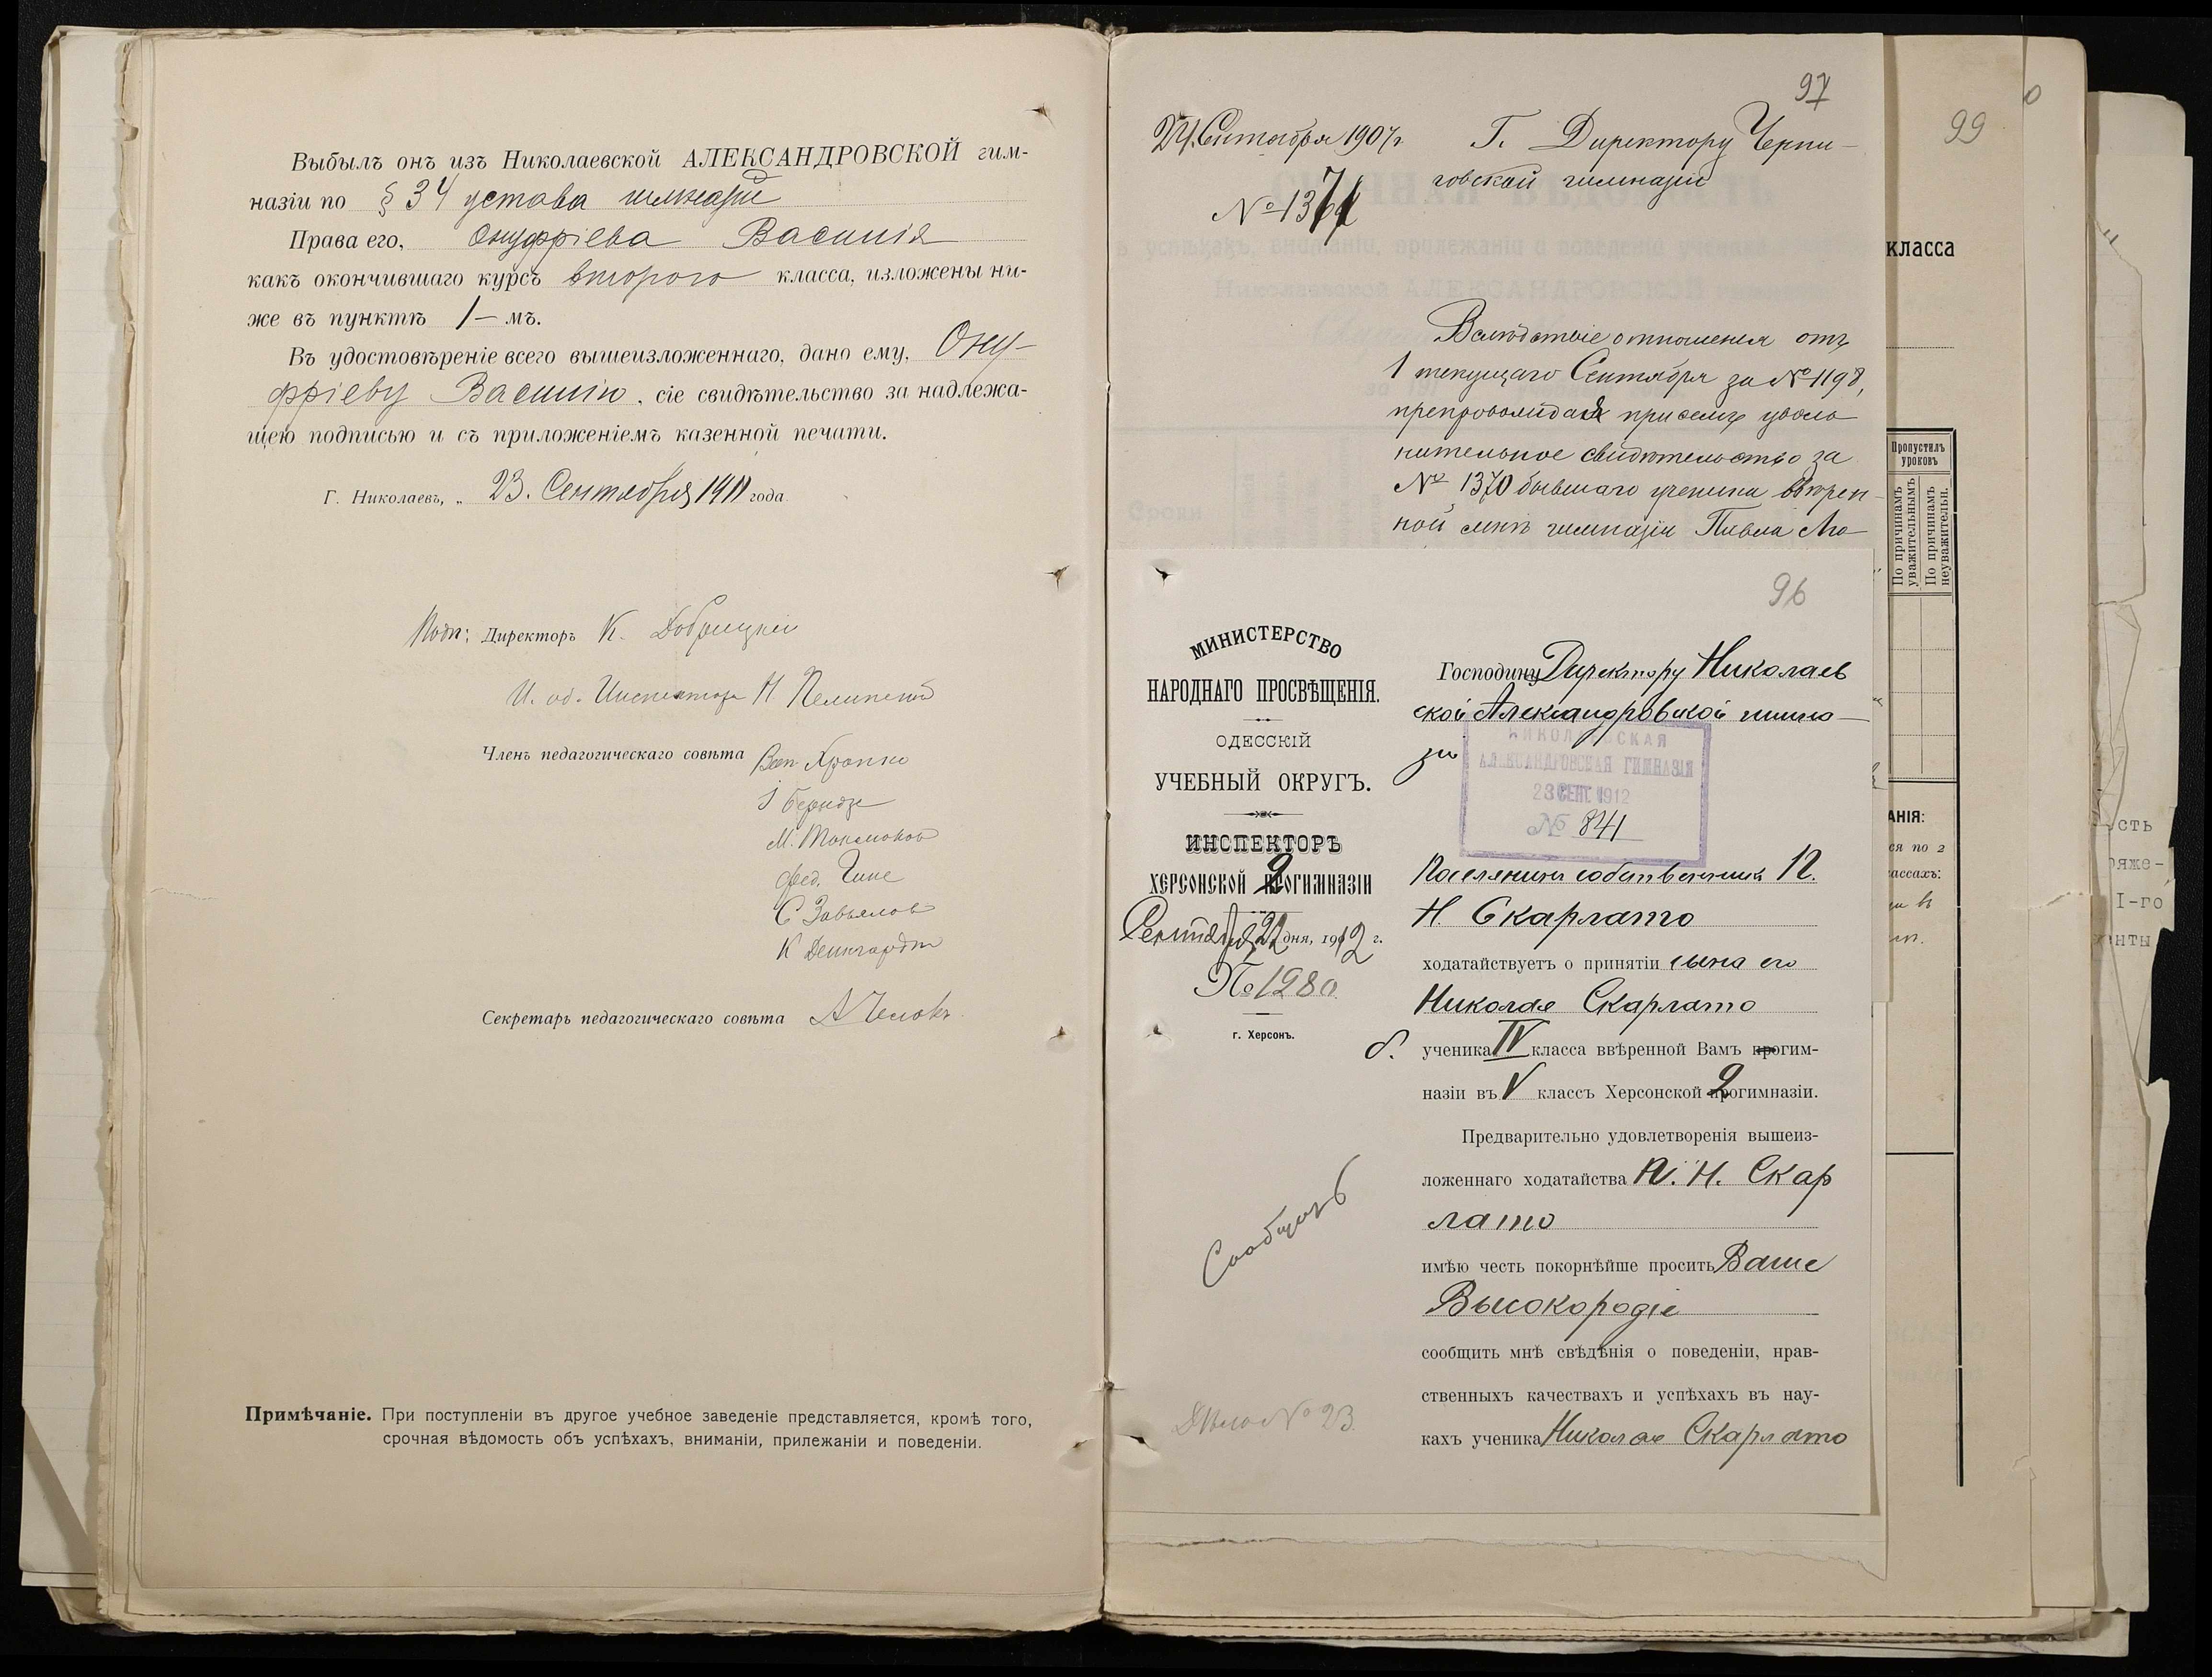 Выбылъ онъ изъ Николаевской АЛЕКСАНДРОВСКОЙ гим-
назіи по § 34 устава гимназій
Права его, Онуфріева Василія
какъ окончившаго курсъ второго класса, изложены ни-
же въ пунктѣ 1-мъ.
Въ удостовѣреніе всего вышеизложеннаго, дано ему, Ону-
фріеву Василію, сіе свидѣтельство за надлежа-
щею подписью и съ приложеніемъ казенной печати.
Г. Николаевъ, „ 23. Сентября 1911 года.
Подп: Директоръ К. Добрицкій
И. об. Инспектора Н.
Членъ педагогическаго совѣта
С Завьялов
Секретарь педагогическаго совѣта
Примѣчаніе. При поступленіи въ другое учебное заведеніе представляется, кромѣ того,
срочная вѣдомость объ успѣхахъ, вниманіи, прилежаніи и поведеніи.
97
24 Сентября 1907 г.
Г. Директору Черни-
говской гимназіи
Вслѣдствіе отношенія отъ
1 текущаго Сентября за № 1198,
препровождая при семъ уволь
нительное свидѣтельство за
№ 1370 бывшаго ученика ввѣрен-
ной мнѣ гимназіи Павла
96
МИНИСТЕРСТВО
НАРОДНАГО ПРОСВѢЩЕНІЯ.
ОДЕССКІЙ
УЧЕБНЫЙ ОКРУГЪ.
ИНСПЕКТОРЪ
ХЕРСОНСКОЙ 2 ПРОГИМНАЗІИ
Сентября 22 дня, 1912 г.
№ 1280
г. Херсонъ.
Господину Директору Николаев
ской Александровской гимна-
зіи
НИКОЛАЕВСКАЯ
АЛЕКСАНДРОВСКАЯ ГИМНАЗІЯ
23 СЕНТ. 1912
№ 841
Поселянинъ собственникъ П.
Н. Скарлато
ходатайствуетъ о принятіи сына его
Николая Скарлато
б. ученика IV класса ввѣренной Вамъ прогим-
назіи въ V классъ Херсонской 2 прогимназіи.
Предварительно удовлетворенія вышеиз-
ложеннаго ходатайства П. Н. Скар
лато
имѣю честь покорнѣйше просить Ваше
Высокородіе
сообщить мнѣ свѣдѣнія о поведеніи, нрав-
ственныхъ качествахъ и успѣхахъ въ нау-
кахъ ученика Николая Скарлато
Сообщить
Дѣло № 23
99
класса
Пропустилъ
уроковъ
По причинамъ
уважительнымъ
По причинамъ
неуважительн.
АНІЯ:
ся по 2
ассахъ:
сть
яже-
I-го
нты